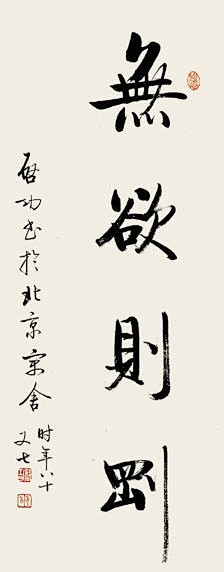 無欲則剛
启功書於北京寓舍
时年八十
又七